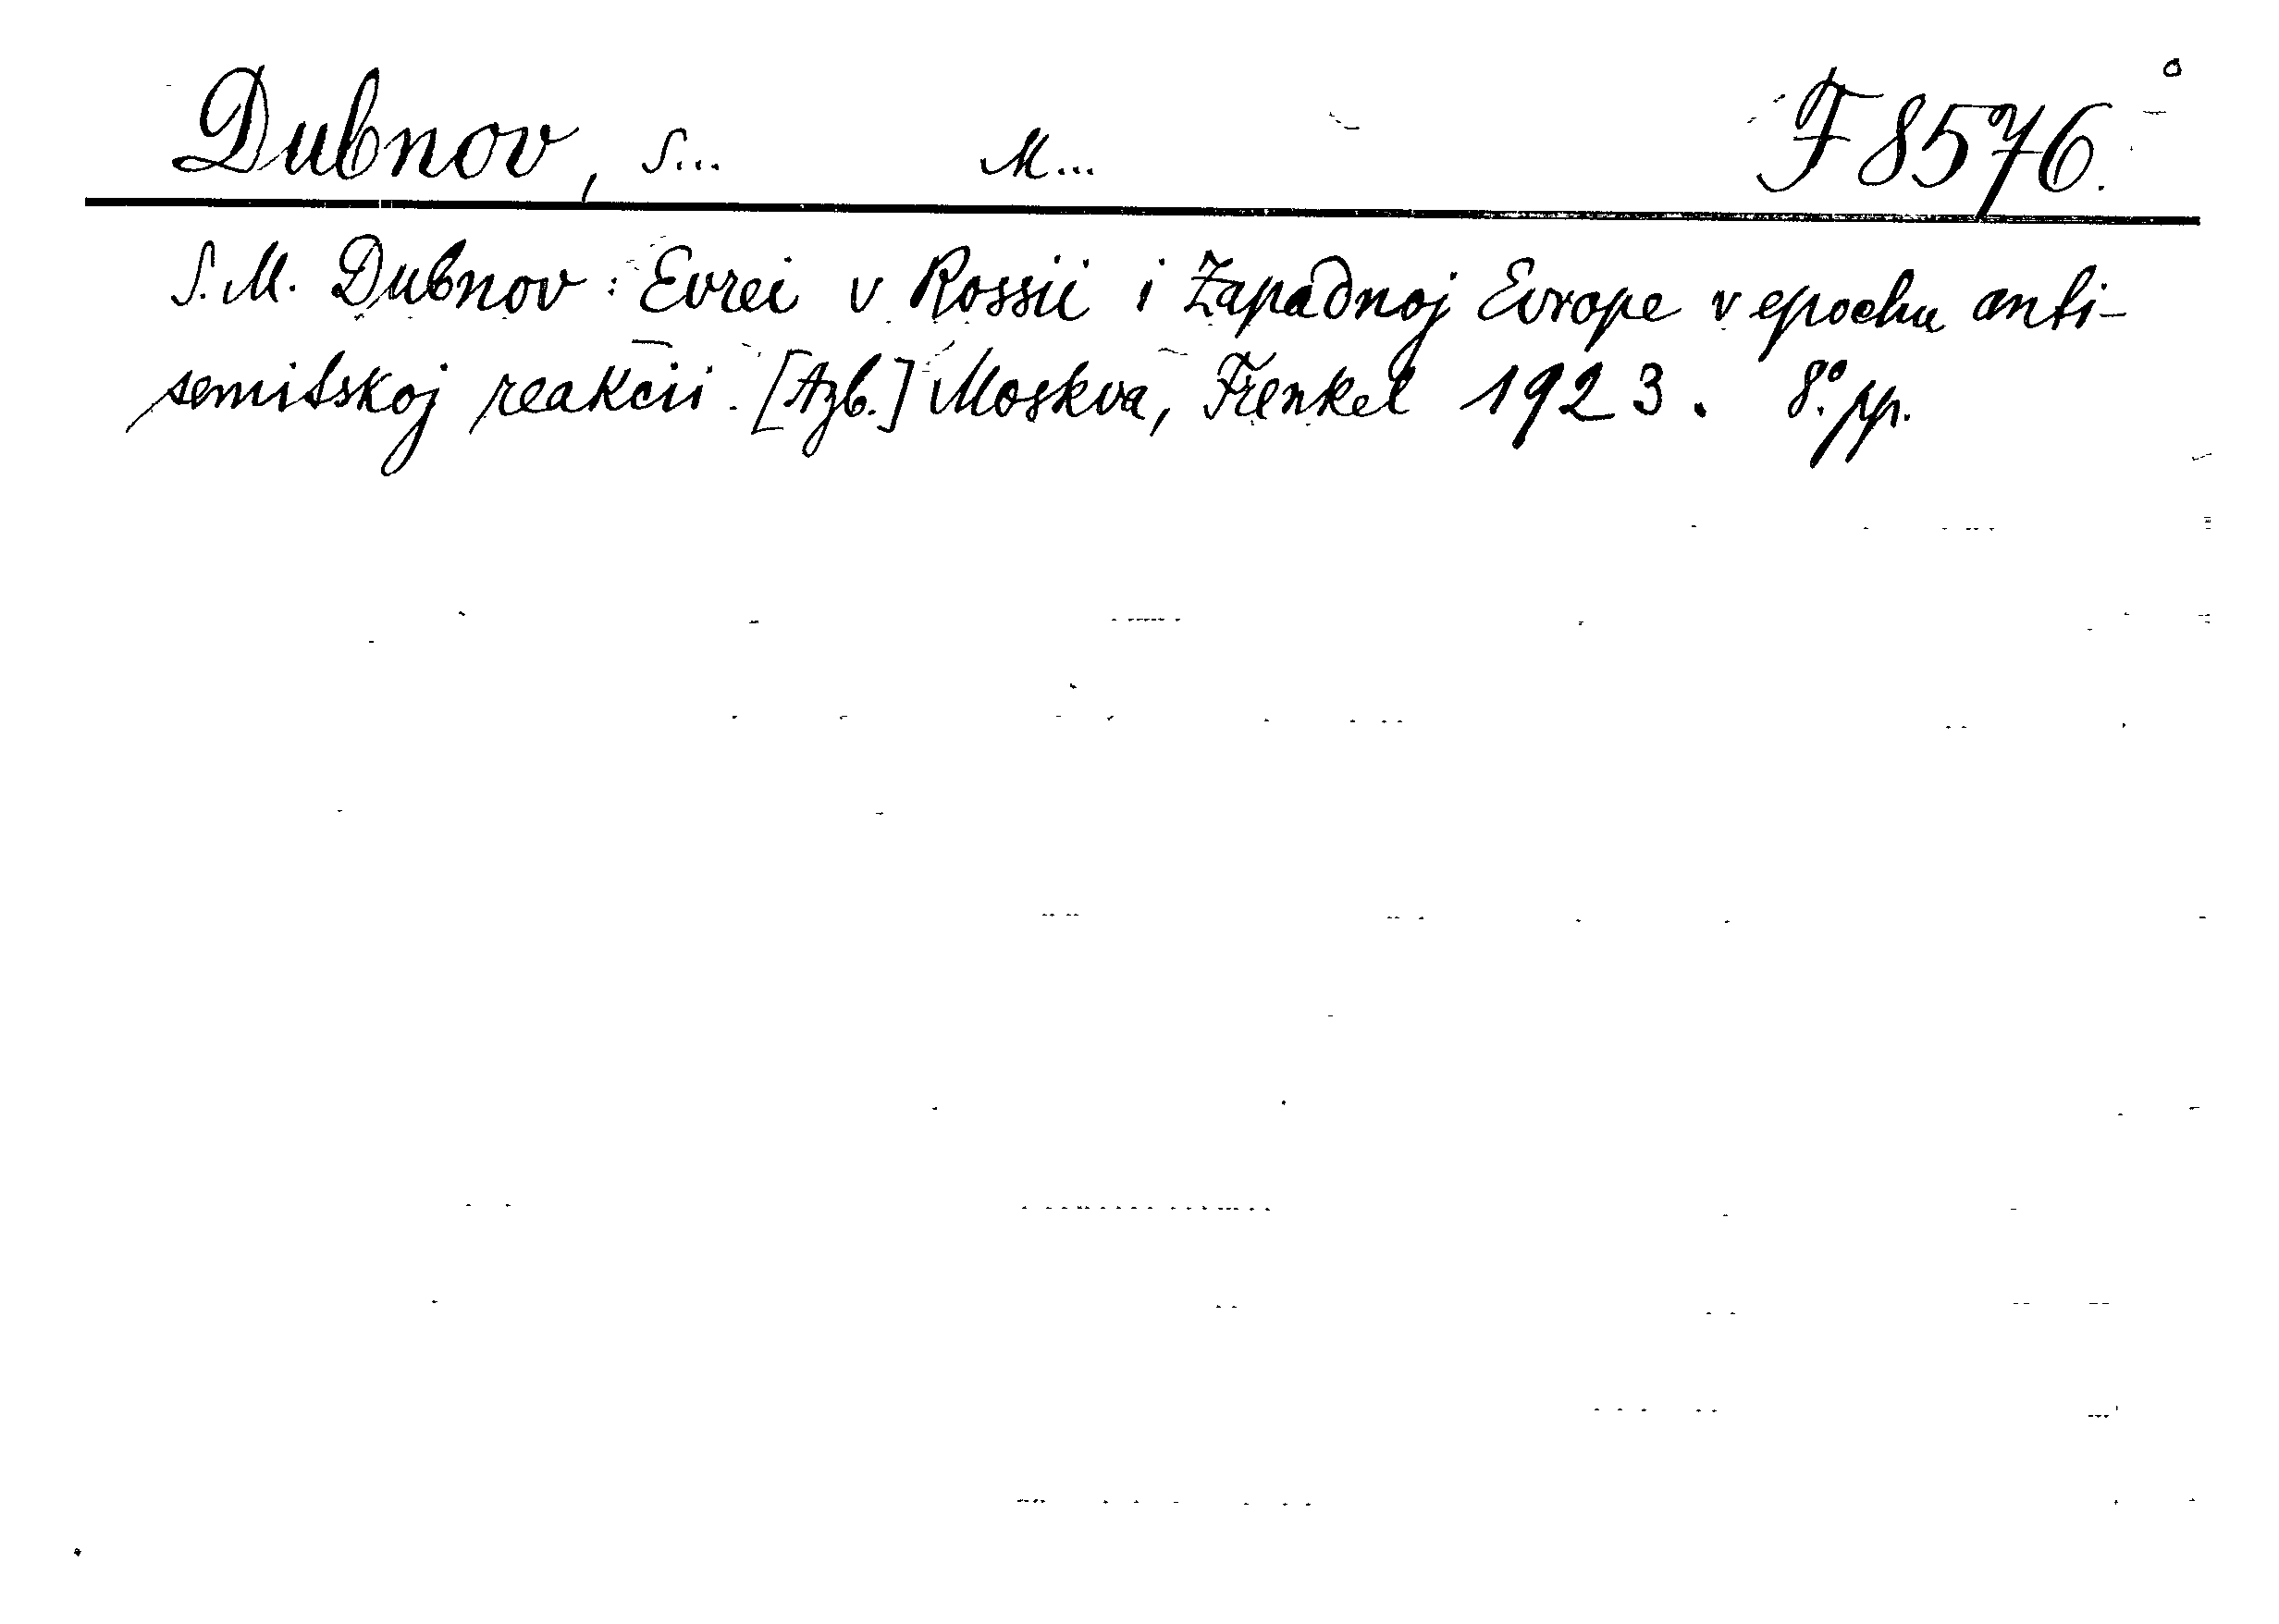 Dubnov, S... M... F 8576.
S. M. Dubnov: Evrei v Rossii i Zapadnoj Evrope v epochu anti-
semitskoj reakcii. [Azb.] Moskva, Frenkel 1923. 8° pp.